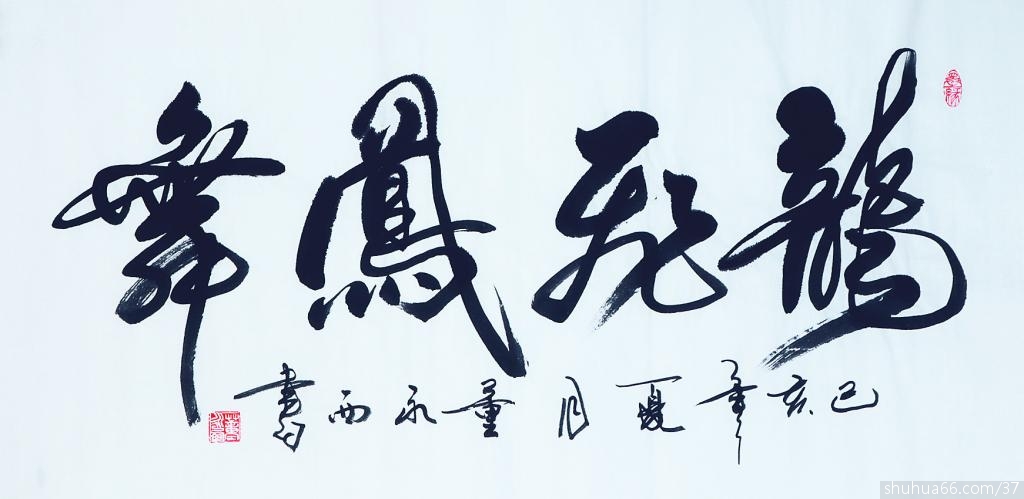 龍飛鳳舞
己亥年夏月董永西書
shuhua66.com/37